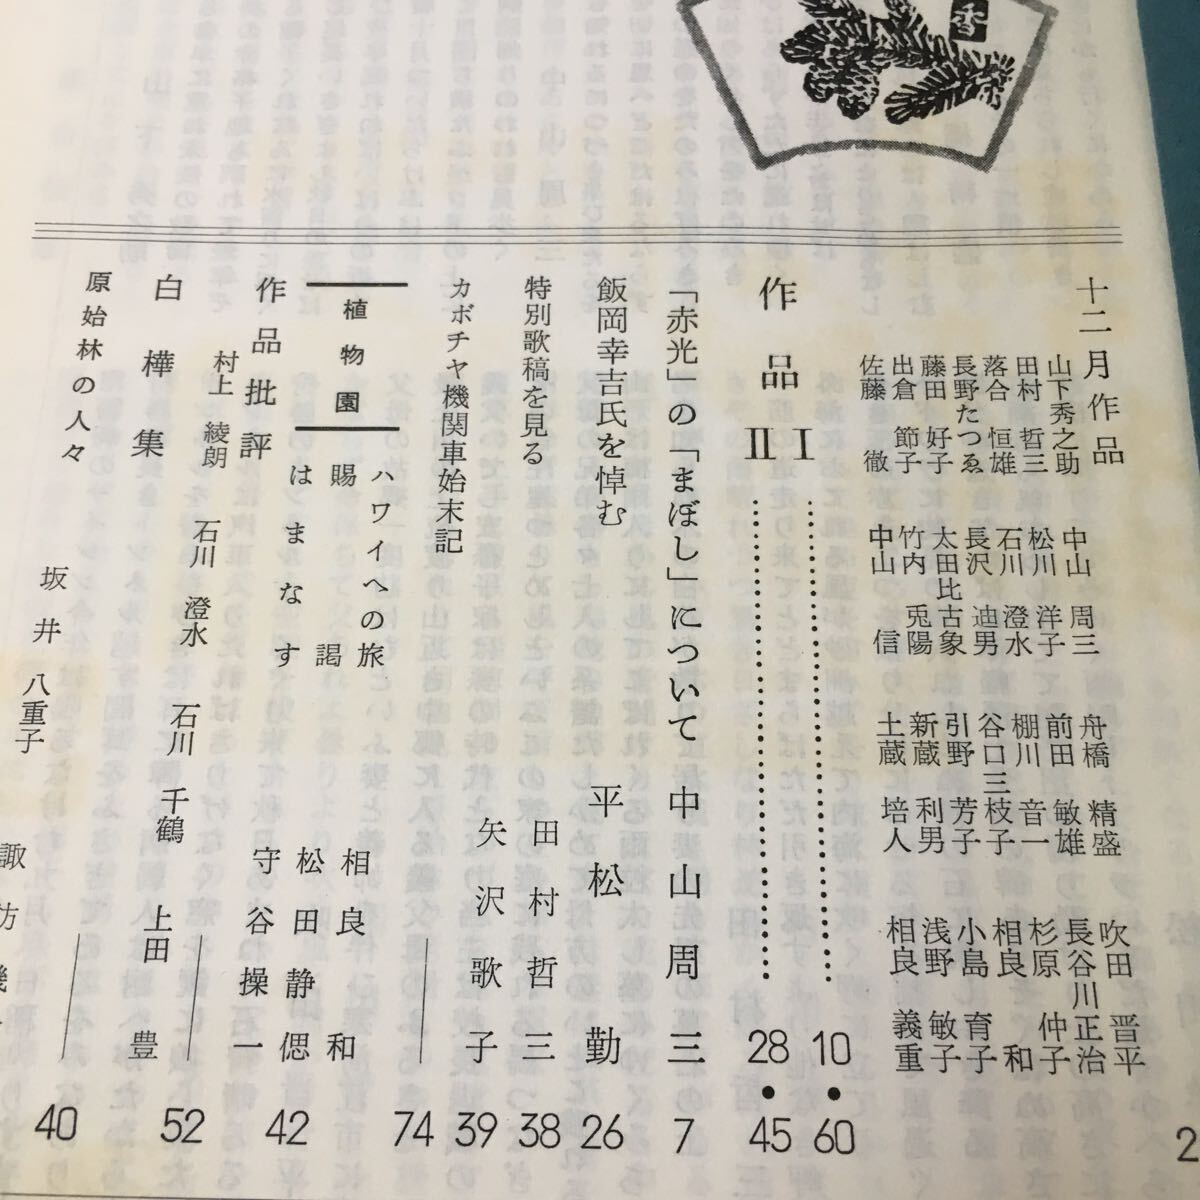 香
十二月作品
山下秀之助　中山　周三　舟橋　精盛　吹田　晋平
田村　哲三　松川　洋子　前田　敏雄　長谷川正治
落合　恒雄　石川　澄水　棚川　音一　杉原　仲子
長野たつゑ　長沢　迪男　谷口三枝子　相良　和
藤田　好子　太田比古象　引野　芳子　小島　育子
出倉　節子　竹内　兎陽　新蔵　利男　浅野　敏子
佐藤　徹　中山　信　土蔵　培人　相良　義重
2
作品 I ……………… 10・60
II ……………… 28・45
「赤光」の「まぼし」について　中山周三　7
飯岡幸吉氏を悼む　平松　勤　26
特別歌稿を見る　田村哲三　38
カボチヤ機関車始末記　矢沢歌子　39
植物園
ハワイへの旅　相良　和　74
賜謁　松田静偲
はまなす　守谷操一　42
作品批評
村上　綾朗　石川　澄水　石川　千鶴　上田　豊　52
白樺集　40
原始林の人々　坂井　八重子　諏訪